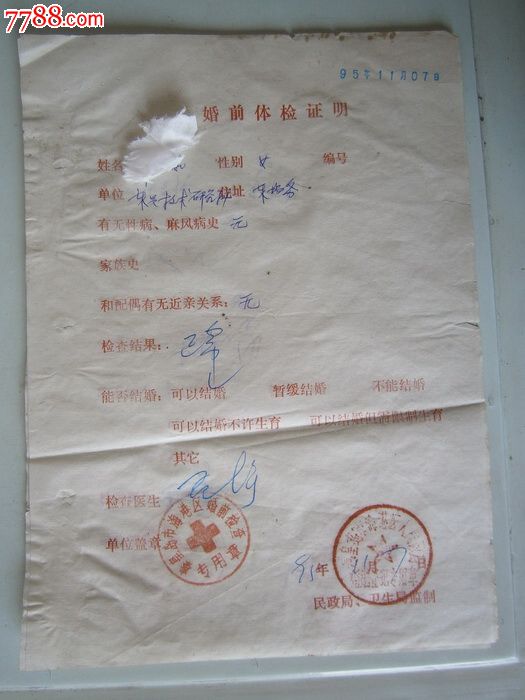 7788.com
95年11月07日
婚前体检证明
姓名 性别 女 编号
单位 技术研究所 住址
有无性病、麻风病史 无
家族史
和配偶有无近亲关系：无
检查结果：正常
能否结婚：可以结婚 暂缓结婚 不能结婚
可以结婚不许生育 可以结婚但需限制生育
其它
检查医生
单位盖章
秦皇岛市海港区婚前检查章
专用
95年11月7日
民政局、卫生局监制